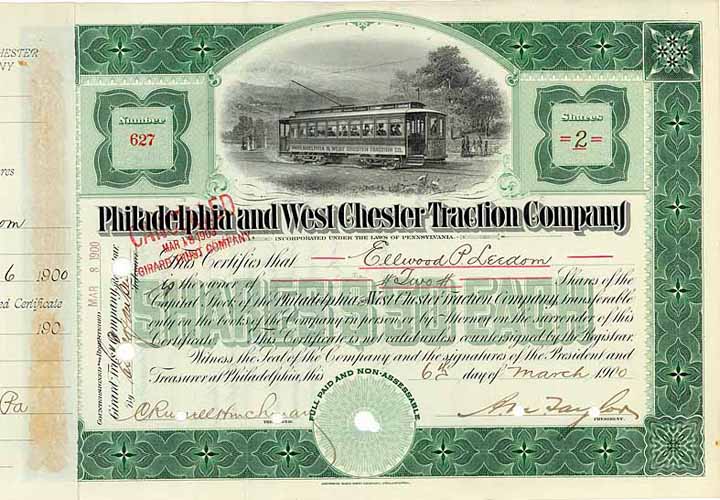 HESTER
NY
res
om
6 1900
ed Certificate
190
Pa
Number
627
Shares
=2=
PHILADELPHIA & WEST CHESTER TRACTION CO.
Philadelphia and West Chester Traction Company
INCORPORATED UNDER THE LAWS OF PENNSYLVANIA.
CANCELLED
MAR 18 1903
GIRARD TRUST COMPANY
MAR 8 1900
COUNTERSIGNED AND REGISTERED
Girard Trust Company, Registrar
By
This Certifies that Ellwood P. Leedom
is the owner of Two Shares of the
Capital Stock of the Philadelphia and West Chester Traction Company, transferable
only on the books of the Company in person or by Attorney on the surrender of this
Certificate. This Certificate is not valid unless countersigned by the Registrar.
Witness the Seal of the Company and the signatures of the President and
Treasurer at Philadelphia, this 6th day of March 1900
SHARES $50 EACH
FULL PAID AND NON-ASSESSABLE.
C Russell Hinchman
TREASURER.
A M Taylor
PRESIDENT.